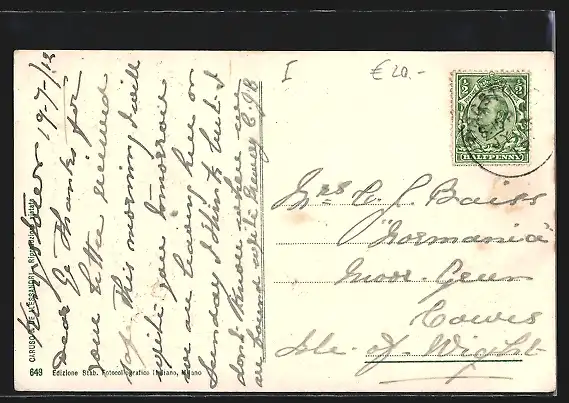 Kingstown 19-7-/12
Dear Ge Thanks for
your letter received
safe this morning I will
write you tomorrow
we are leaving here on
Sunday I think but I
don't know where we
are bound
I
€ 20.-
HALFPENNY
Mrs H. J. Baiss
"Normania"
Moor Green
Cowes
Isle of Wight
649 Edizione Stab. Fotocollografico Italiano, Milano